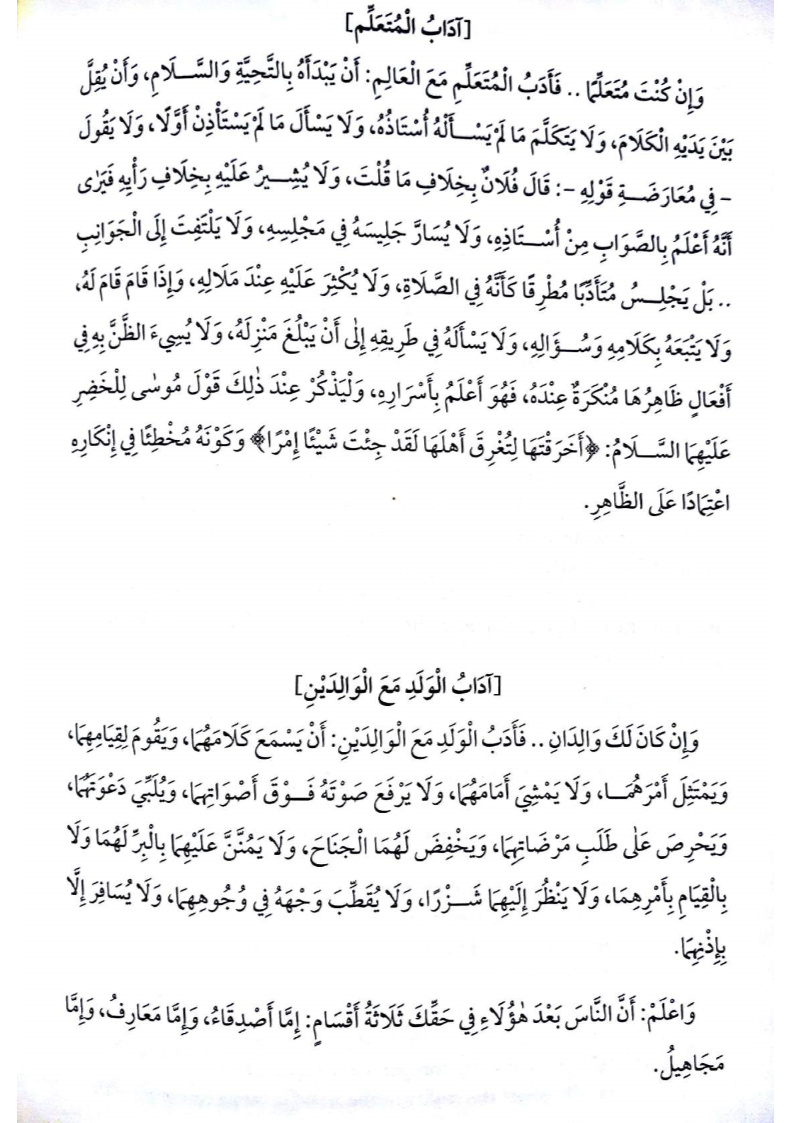 [آدَابُ الْمُتَعَلِّمِ]
وَإِنْ كُنْتَ مُتَعَلِّمًا .. فَأَدَبُ الْمُتَعَلِّمِ مَعَ الْعَالِمِ: أَنْ يَبْدَأَهُ بِالتَّحِيَّةِ وَالسَّلَامِ، وَأَنْ يُقِلَّ
بَيْنَ يَدَيْهِ الْكَلَامَ، وَلَا يَتَكَلَّمَ مَا لَمْ يَسْأَلْهُ أُسْتَاذُهُ، وَلَا يَسْأَلَ مَا لَمْ يَسْتَأْذِنْ أَوَّلًا، وَلَا يَقُولَ
- فِي مُعَارَضَةِ قَوْلِهِ -: قَالَ فُلَانٌ بِخِلَافِ مَا قُلْتَ، وَلَا يُشِيرُ عَلَيْهِ بِخِلَافِ رَأْيِهِ فَيَرَى
أَنَّهُ أَعْلَمُ بِالصَّوَابِ مِنْ أُسْتَاذِهِ، وَلَا يُسَارَّ جَلِيسَهُ فِي مَجْلِسِهِ، وَلَا يَلْتَفِتَ إِلَى الْجَوَانِبِ
.. بَلْ يَجْلِسُ مُتَأَدِّبًا مُطْرِقًا كَأَنَّهُ فِي الصَّلَاةِ، وَلَا يُكْثِرَ عَلَيْهِ عِنْدَ مَلَالِهِ، وَإِذَا قَامَ قَامَ لَهُ،
وَلَا يَتْبَعَهُ بِكَلَامِهِ وَسُؤَالِهِ، وَلَا يَسْأَلَهُ فِي طَرِيقِهِ إِلَى أَنْ يَبْلُغَ مَنْزِلَهُ، وَلَا يُسِيءَ الظَّنَّ بِهِ فِي
أَفْعَالٍ ظَاهِرُهَا مُنْكَرَةٌ عِنْدَهُ، فَهُوَ أَعْلَمُ بِأَسْرَارِهِ، وَلْيَذْكُرْ عِنْدَ ذٰلِكَ قَوْلَ مُوسَى لِلْخَضِرِ
عَلَيْهِمَا السَّلَامُ: ﴿أَخَرَقْتَهَا لِتُغْرِقَ أَهْلَهَا لَقَدْ جِئْتَ شَيْئًا إِمْرًا﴾ وَكَوْنَهُ مُخْطِئًا فِي إِنْكَارِهِ
اعْتِمَادًا عَلَى الظَّاهِرِ.
[آدَابُ الْوَلَدِ مَعَ الْوَالِدَيْنِ]
وَإِنْ كَانَ لَكَ وَالِدَانِ .. فَأَدَبُ الْوَلَدِ مَعَ الْوَالِدَيْنِ: أَنْ يَسْمَعَ كَلَامَهُمَا، وَيَقُومَ لِقِيَامِهِمَا،
وَيَمْتَثِلَ أَمْرَهُمَا، وَلَا يَمْشِيَ أَمَامَهُمَا، وَلَا يَرْفَعَ صَوْتَهُ فَوْقَ أَصْوَاتِهِمَا، وَيُلَبِّيَ دَعْوَتَهُمَا،
وَيَحْرِصَ عَلَى طَلَبِ مَرْضَاتِهِمَا، وَيَخْفِضَ لَهُمَا الْجَنَاحَ، وَلَا يَمُنَّنَّ عَلَيْهِمَا بِالْبِرِّ لَهُمَا وَلَا
بِالْقِيَامِ بِأَمْرِهِمَا، وَلَا يَنْظُرَ إِلَيْهِمَا شَزْرًا، وَلَا يُقَطِّبَ وَجْهَهُ فِي وُجُوهِهِمَا، وَلَا يُسَافِرَ إِلَّا
بِإِذْنِهِمَا.
وَاعْلَمْ: أَنَّ النَّاسَ بَعْدَ هٰؤُلَاءِ فِي حَقِّكَ ثَلَاثَةُ أَقْسَامٍ: إِمَّا أَصْدِقَاءُ، وَإِمَّا مَعَارِفُ، وَإِمَّا
مَجَاهِيلُ.